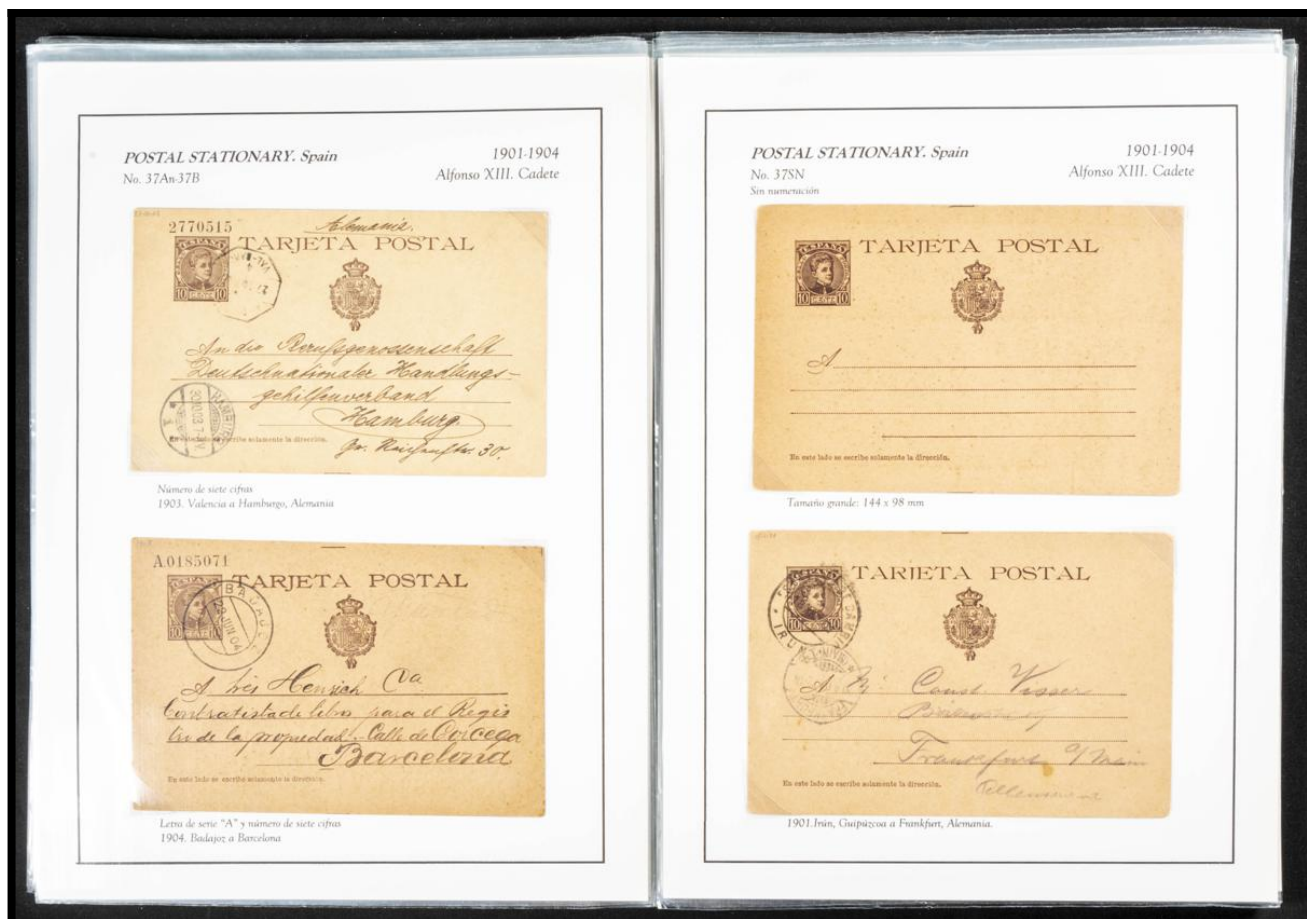 POSTAL STATIONARY. Spain
1901-1904
No. 37An-37B
Alfonso XIII. Cadete
2770515
Alemania.
ESPAÑA
TARJETA POSTAL
10 CÉNTs 10
An die Berufsgenossenschaft
Deutschnationaler Handlungs-
gehilfenverband
Hamburg
HAMBURG
1
En este lado se escribe solamente la dirección.
Número de siete cifras
1903. Valencia a Hamburgo, Alemania
A.0185071
ESPAÑA
TARJETA POSTAL
10 10
BADAJOZ
29 JUN 04
A Henrich Cia
Contratista de libros para el Regis
tro de la propiedad - Calle de Corcega
Barcelona
En este lado se escribe solamente la dirección.
Letra de serie "A" y número de siete cifras
1904. Badajoz a Barcelona
POSTAL STATIONARY. Spain
1901-1904
No. 37SN
Alfonso XIII. Cadete
Sin numeración
ESPAÑA
TARJETA POSTAL
10 CÉNTs 10
A
En este lado se escribe solamente la dirección.
Tamaño grande: 144 x 98 mm
ESPAÑA
TARJETA POSTAL
10 10
IRUN
A Const. Visser
Frankfurt a/ Main
En este lado se escribe solamente la dirección.
1901.Irún, Guipúzcoa a Frankfurt, Alemania.